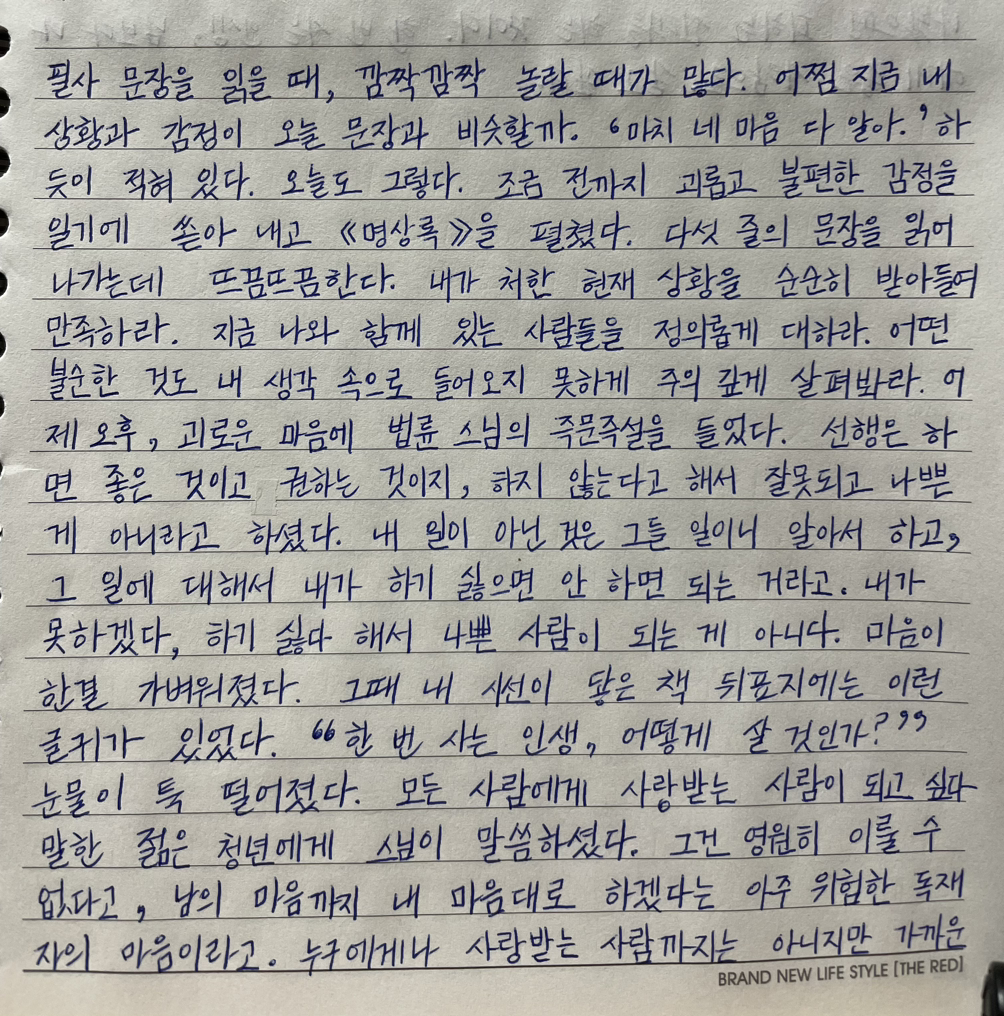 필사 문장을 읽을 때, 깜짝깜짝 놀랄 때가 많다. 어쩜 지금 내
상황과 감정이 오늘 문장과 비슷할까. ‘마치 네 마음 다 알아.’ 하
듯이 적혀 있다. 오늘도 그렇다. 조금 전까지 괴롭고 불편한 감정을
일기에 쏟아 내고 《명상록》을 펼쳤다. 다섯 줄의 문장을 읽어
나가는데 뜨끔뜨끔한다. 내가 처한 현재 상황을 순순히 받아들여
만족하라. 지금 나와 함께 있는 사람들을 정의롭게 대하라. 어떤
불순한 것도 내 생각 속으로 들어오지 못하게 주의 깊게 살펴봐라. 어
제 오후, 괴로운 마음에 법륜 스님의 즉문즉설을 들었다. 선행은 하
면 좋은 것이고 권하는 것이지, 하지 않는다고 해서 잘못되고 나쁜
게 아니라고 하셨다. 내 일이 아닌 것은 그들 일이니 알아서 하고,
그 일에 대해서 내가 하기 싫으면 안 하면 되는 거라고. 내가
못하겠다, 하기 싫다 해서 나쁜 사람이 되는 게 아니다. 마음이
한결 가벼워졌다. 그때 내 시선이 닿은 책 뒤표지에는 이런
글귀가 있었다. “한 번 사는 인생, 어떻게 살 것인가?”
눈물이 툭 떨어졌다. 모든 사람에게 사랑받는 사람이 되고 싶다
말한 젊은 청년에게 스님이 말씀하셨다. 그건 영원히 이룰 수
없다고, 남의 마음까지 내 마음대로 하겠다는 아주 위험한 독재
자의 마음이라고. 누구에게나 사랑받는 사람까지는 아니지만 가까운
BRAND NEW LIFE STYLE [THE RED]